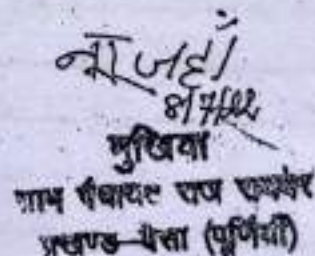 नूरजहाँ
8/7/22
मुखिया
ग्राम पंचायत राज
प्रखण्ड-बैसा (पूर्णियाँ)